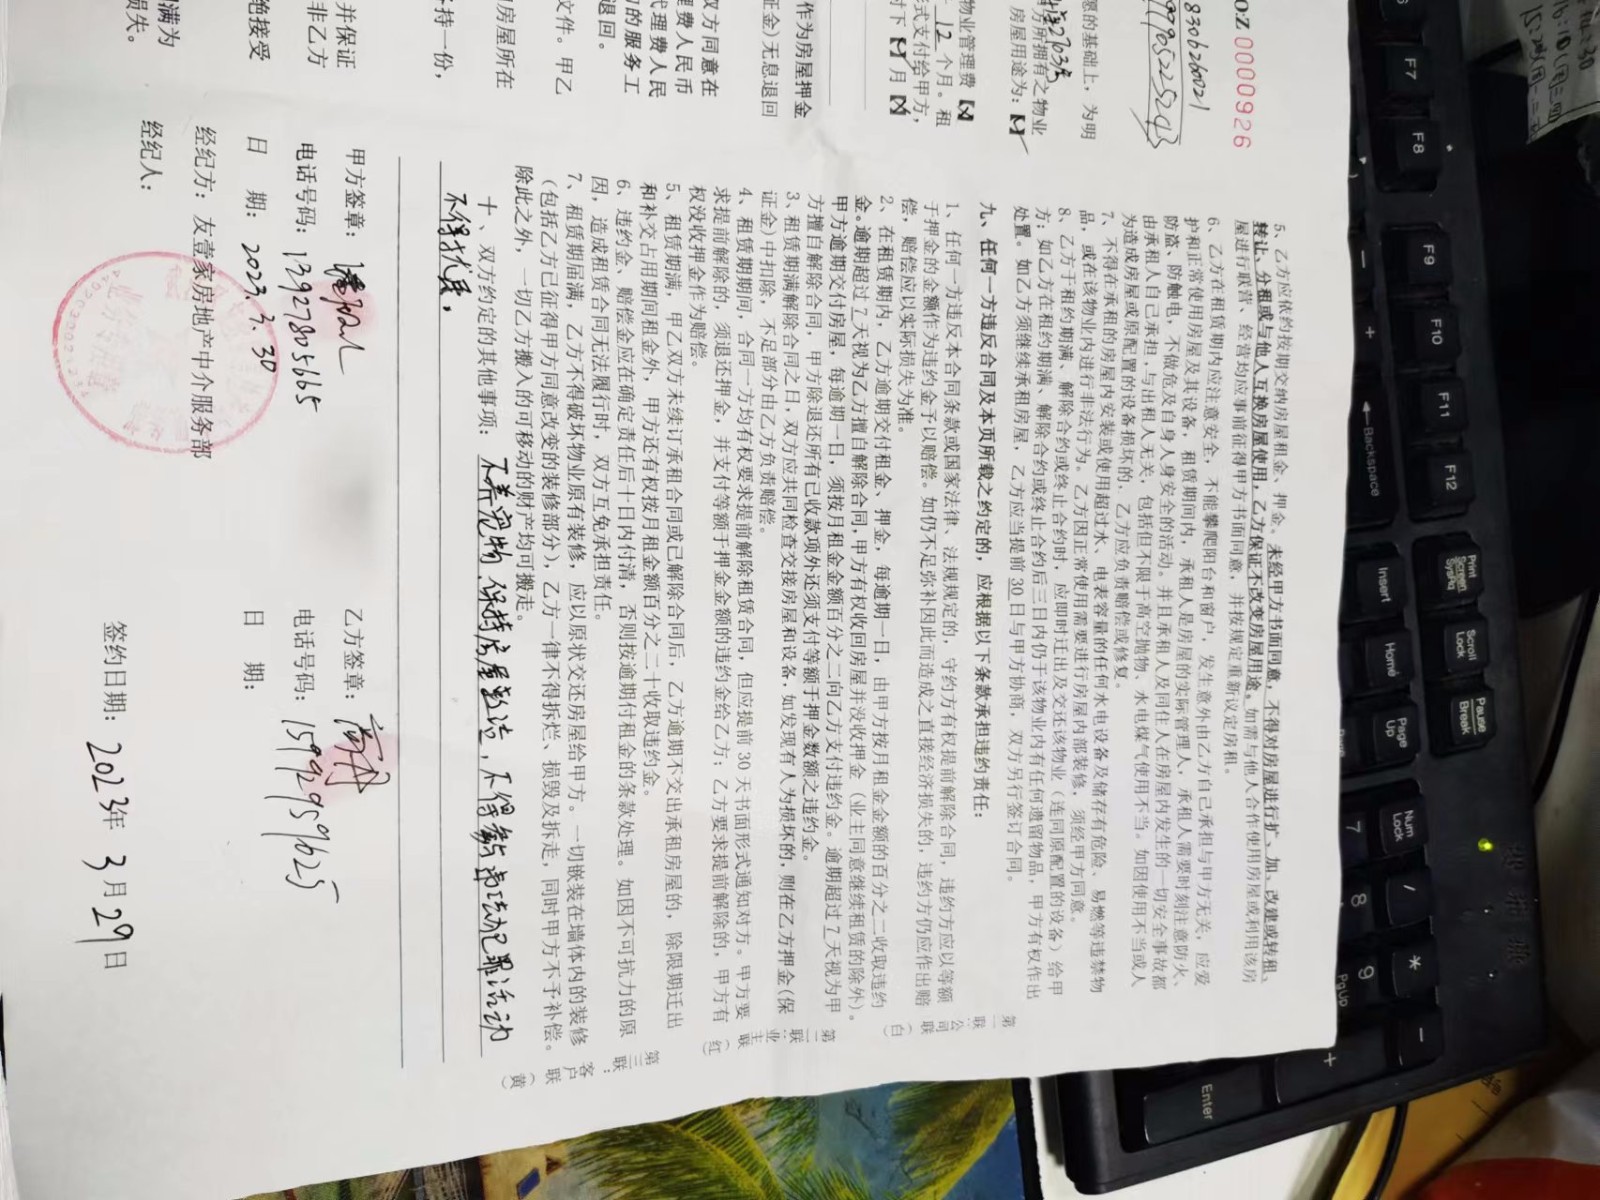 OZ 0000926
愿的基础上，为明
方所拥有之物业
房屋用途为：
物业管理费
12 个月。租
形式支付给甲方，
作为房屋押金
证金）无息退回
双方同意在
理费人民币
代理费人民
的服务工
退回。
文件。甲乙
房屋所在
持一份，
并保证
非乙方
绝接受
期满为
损失。
5、乙方应依约按期交纳房屋租金、押金。未经甲方书面同意，不得对房屋进行扩、加、改建或转租、
转让、分租或与他人互换房屋使用，乙方保证不改变房屋用途。如需与他人合作使用房屋或利用该房
屋进行联营、经营均应事前征得甲方书面同意，并按规定重新议定房租。
6、乙方在租赁期内应注意安全，不能攀爬阳台和窗户，发生意外由乙方自己承担与甲方无关，应爱
护和正常使用房屋及其设备，租赁期间内，承租人是房屋的实际管理人，承租人需要时刻注意防火、
防盗、防触电，不做危及自身人身安全的活动。并且承租人及同住人在房屋内发生的一切安全事故都
由承租人自己承担，与出租人无关，包括但不限于高空抛物、水电煤气使用不当。如因使用不当或人
为造成房屋或原配置的设备损坏的，乙方应负责赔偿或修复。
7、不得在承租的房屋内安装或使用超过水、电表容量的任何水电设备及储存有危险、易燃等违禁物
品，或在该物业内进行非法行为。乙方因正常使用需要进行房屋内部装修，须经甲方同意。
8、乙方于租约期满、解除合约或终止合约时，应即时迁出及交还该物业（连同原配置的设备）给甲
方；如乙方在租约期满、解除合约或终止合约后三日内仍于该物业内有任何遗留物品，甲方有权作出
处置。如乙方须继续承租房屋，乙方应当提前 30 日与甲方协商，双方另行签订合同。
九、任何一方违反合同及本页所载之约定的，应根据以下条款承担违约责任：
1、任何一方违反本合同条款或国家法律、法规规定的，守约方有权提前解除合同，违约方应以等额
于押金的金额作为违约金予以赔偿。如仍不足弥补因此而造成之直接经济损失的，违约方仍应作出赔
偿，赔偿应以实际损失为准。
2、在租赁期内，乙方逾期交付租金、押金，每逾期一日，由甲方按月租金金额的百分之二收取违约
金。逾期超过 7 天视为乙方擅自解除合同，甲方有权收回房屋并没收押金（业主同意继续租赁的除外）。
甲方逾期交付房屋，每逾期一日，须按月租金金额百分之二向乙方支付违约金。逾期超过 7 天视为甲
方擅自解除合同，甲方除退还所有已收款项外还须支付等额于押金数额之违约金。
3、租赁期满解除合同之日，双方应共同检查交接房屋和设备，如发现有人为损坏的，则在乙方押金（保
证金）中扣除，不足部分由乙方负责赔偿。
4、租赁期期间，合同一方均有权要求提前解除租赁合同，但应提前 30 天书面形式通知对方。甲方要
求提前解除的，须退还押金，并支付等额于押金金额的违约金给乙方；乙方要求提前解除的，甲方有
权没收押金作为赔偿。
5、租赁期满，甲乙双方未续订承租合同或已解除合同后，乙方逾期不交出承租房屋的，除限期迁出
和补交占用期间租金外，甲方还有权按月租金额百分之二十收取违约金。
6、违约金、赔偿金应在确定责任后十日内付清，否则按逾期付租金的条款处理。如因不可抗力的原
因，造成租赁合同无法履行时，双方互免承担责任。
7、租赁期届满，乙方不得破坏物业原有装修，应以原状交还房屋给甲方。一切嵌装在墙体内的装修
（包括乙方已征得甲方同意改变的装修部分），乙方一律不得拆烂、损毁及拆走，同时甲方不予补偿。
除此之外，一切乙方搬入的可移动的财产均可搬走。
十、双方约定的其他事项：不养宠物，保持房屋整洁，不得参与违法犯罪活动
不得扰民。
第一联：公司联（白）
第二联：业主联（红）
第三联：客户联（黄）
甲方签章：
电话号码：13927805665
日 期：2023.3.30
经纪方：友壹家房地产中介服务部
经纪人：
乙方签章：
电话号码：15992959625
日 期：
签约日期：2023年 3 月 29 日
F7
F8
F9
F10
F11
F12
Backspace
Print Screen SysRq
Scroll Lock
Pause Break
Insert
Home
Page Up
Num Lock
/
*
-
7
8
9
PgUp
+
Enter